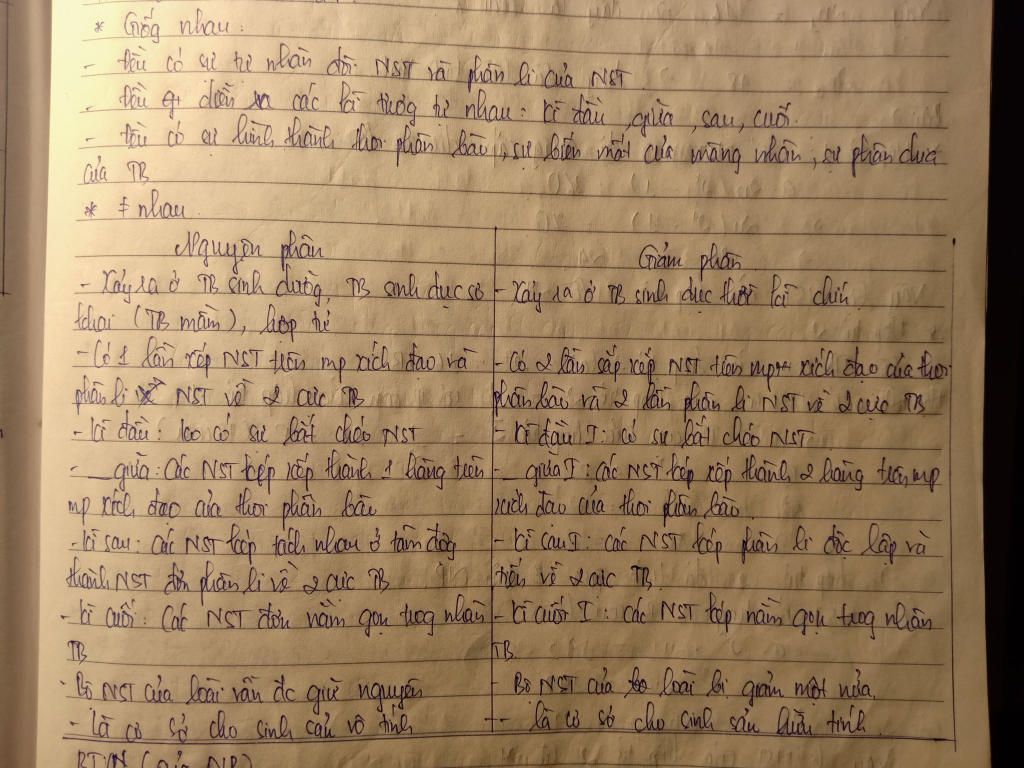 * Giống nhau:
- đều có sự tự nhân đôi NST và phân li của NST.
- đều diễn ra các kì tương tự nhau: kì đầu, giữa, sau, cuối.
- đều có sự hình thành thoi phân bào, sự biến mất của màng nhân, sự phân chia
của TB
* ≠ nhau.
Nguyên phân
Giảm phân
- Xảy ra ở TB sinh dưỡng, TB sinh dục sơ
khai (TB mầm), hợp tử
- Xảy ra ở TB sinh dục thời kì chín
- Có 1 lần xếp NST trên mp xích đạo và
phân li NST về 2 cực TB
- Có 2 lần sắp xếp NST trên mp xích đạo của thoi
phân bào và 2 lần phân li NST về 2 cực TB
- Kì đầu: ko có sự bắt chéo NST
- Kì đầu I: có sự bắt chéo NST
- __ giữa: Các NST kép xếp thành 1 hàng trên
mp xích đạo của thoi phân bào
- __ giữa I: các NST kép xếp thành 2 hàng trên mp
xích đạo của thoi phân bào
- kì sau: các NST kép tách nhau ở tâm động
thành NST đơn phân li về 2 cực TB
- kì sau I: các NST kép phân li độc lập và
tiến về 2 cực TB
- kì cuối: Các NST đơn nằm gọn trog nhân
TB
- kì cuối I: các NST kép nằm gọn trog nhân
TB
- Bộ NST của loài vẫn đc giữ nguyên
- Bộ NST của loài bị giảm một nửa.
- là cơ sở cho sinh sản vô tính
- là cơ sở cho sinh sản hữu tính